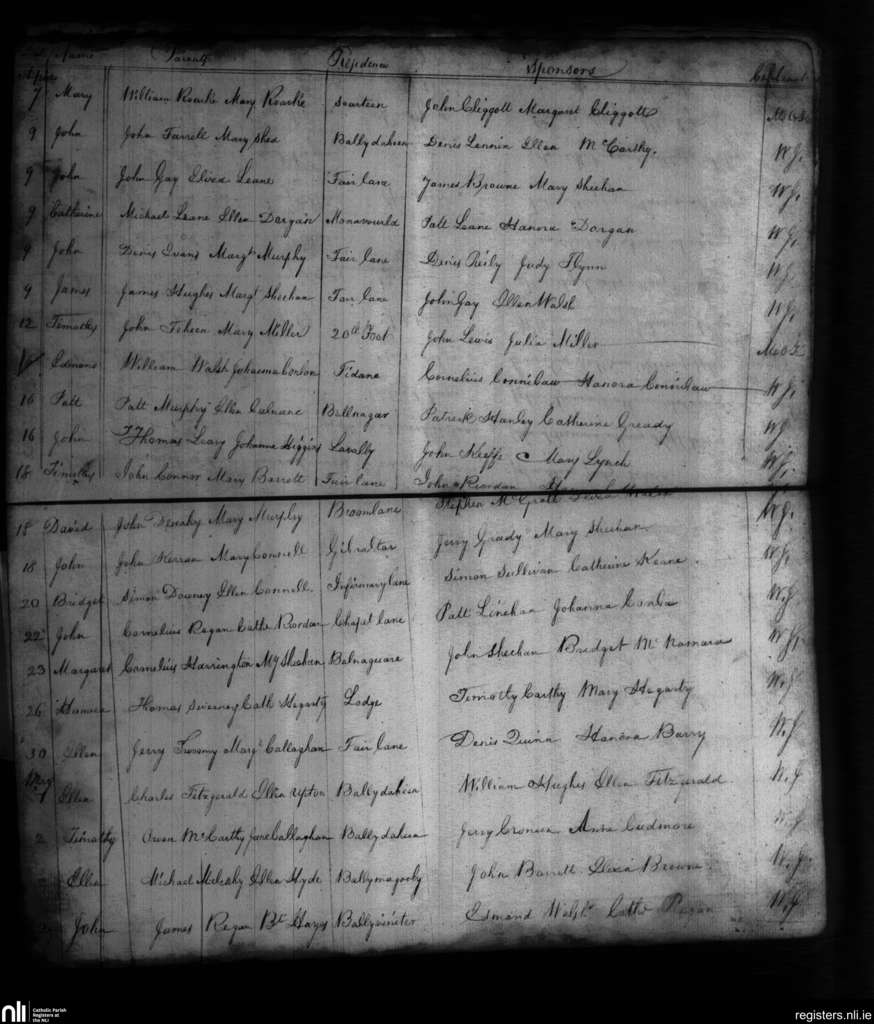 Name Parents Residence Sponsors
7 Mary William Roarke Mary Roarke Scarteen John Cliggott Margaret Cliggott
9 John John Farrell Mary Shea Ballydaheen Denis Lennin Ellen McCarthy. W.J.
9 John John Gay Leane Fair lane James Browne Mary Sheehan W.J.
9 Catherine Michael Leane Ellen Dorgan Patt Leane Hanora Dorgan W.J.
9 John Denis Evans Margt Murphy Fair lane Denis Reily Judy Flynn W.J.
9 James James Hughes Margt Sheehan Fair lane John Gay Ellen Walsh W.J.
12 Timothy John Mary Miller 20th Foot John Lewis Julia Miller
Edmond William Walsh Johanna Conlon Cornelius Hanora W.J.
16 Patt Patt Murphy Ellen Ballnagar Patrick Hanley Catherine Gready W.J.
16 John Thomas Leary Johanna Higgins Lavally John Keeffe Mary Lynch W.J.
18 Timothy John Connor Mary Barrett Fair lane John Riordan
Stephen McGrath
18 David John Mary Murphy Broomlane W.J.
18 John John Mary Connell Gibraltar Jerry Grady Mary Sheehan W.J.
20 Bridget Simon Downey Ellen Connell Infirmary lane Simon Sullivan Catherine Keane. W.J.
22 John Cornelius Regan Cathe Riordan Chapel lane Patt Linehan Johanna W.J.
23 Margaret Cornelius Harrington My Sheehan Balnaguare John Sheehan Bridget McNamara W.J.
26 Hanora Thomas Sweeney Cath Hegarty Lodge Timothy Carthy Mary Hegarty W.J.
30 Ellen Jerry Twomey Margt Callaghan Fair lane Denis Quinn Hanora Barry W.J.
May
1 Ellen Charles Fitzgerald Ellen Upton Ballydaheen William Hughes Ellen Fitzgerald W.J.
2 Timothy Owen McCarthy Jane Callaghan Ballydaheen Jerry Croneen Anne Cudmore W.J.
Ellen Michael Mulcahy Ellen Hyde Ballymagooly John Barrett Eliza Browne W.J.
John James Regan Bt Hayes Ballyviniter Edmond Walsh Cathe Regan W.J.
nli Catholic Parish
Registers at
the NLI
registers.nli.ie